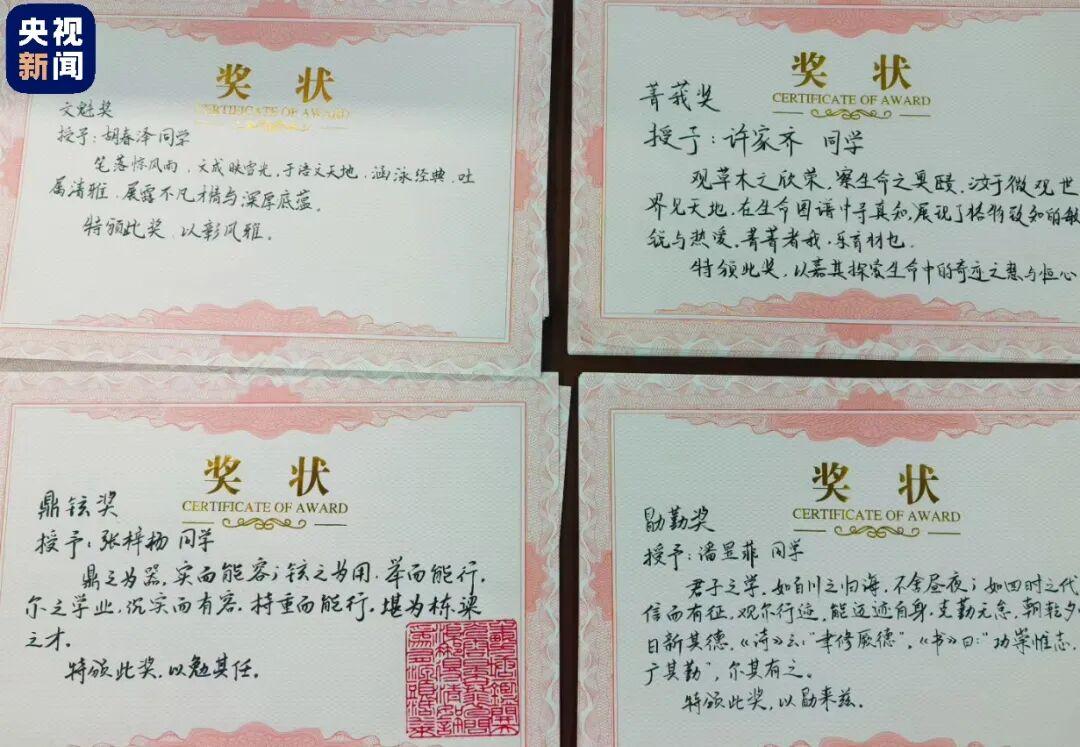 央视
新闻
奖状
CERTIFICATE OF AWARD
文魁奖
授予：胡春泽同学
笔落惊风雨，文成映雪光，于语文天地，涵泳经典，吐
属清雅，展露不凡才情与深厚底蕴。
特颁此奖，以彰风雅。
奖状
CERTIFICATE OF AWARD
菁莪奖
授予：许家齐 同学
观草木之欣荣，察生命之奥赜，汝于微观世
界见天地，在生命图谱中寻真知，展现了格物致知的敏
锐与热爱，菁菁者莪，乐育材也。
特颁此奖，以嘉其探索生命中的奇迹之慧与恒心
奖状
CERTIFICATE OF AWARD
鼎铉奖
授予：张梓扬 同学
鼎之为器，实而能容；铉之为用，举而能行，
尔之学业，沉实而有容，持重而能行，堪为栋梁
之才。
特颁此奖，以勉其任。
奖状
CERTIFICATE OF AWARD
勖勤奖
授予：潘昱菲 同学
君子之学，如百川之归海，不舍昼夜；如四时之代
信而有征，观尔行迹，能迈迹自身，克勤无怠，朝乾夕
日新其德，《诗》云："聿修厥德"，《书》曰："功崇惟志，
广其勤"，尔其有之。
特颁此奖，以勖来兹。